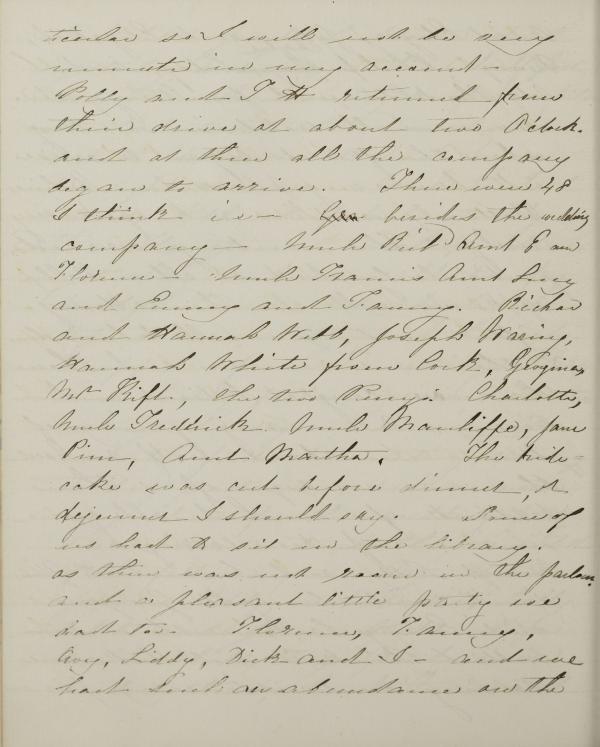 ticular so I will not be very
minute in my account -
Polly and I returned from
their drive at about two O'clock.
and at then all the company
began to arrive. There were 48
I think is - besides the wedding
company - Uncle Rich Aunt E and
Florence - Uncle Francis Aunt Lucy
and Emmy and Fanny. Richar
and Hannah Webb, Joseph Waring,
Hannah White from Cork, Georgina,
Mr Kift., the two Penny's Charlotte,
Uncle Fredrick Uncle Manliffe, Jane
Pim, Aunt Martha. The bride =
cake was cut before dinner, or
dejeuner I should say. Some of
us had to sit in the library.
as there was not room in the parlour
and a pleasant little party we
had too. Florence, Fanny,
Avy, Liddy, Dick and I - and we
had such an abundance on the